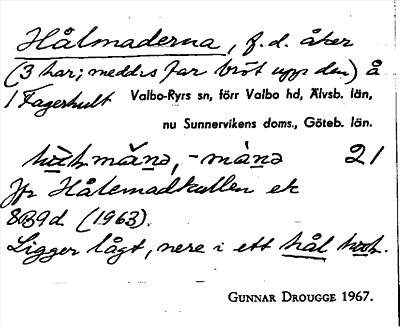 Hålmaderna, f.d. åker
(3 har; meddrs far bröt upp den) å
1 Fagerhult Valbo-Ryrs sn, förr Valbo hd, Älvsb. län,
nu Sunnervikens doms., Göteb. län.
21
Jfr Hålemadkullen ek
8B9d (1963).
Ligger lågt, nere i ett hål
GUNNAR DROUGGE 1967.